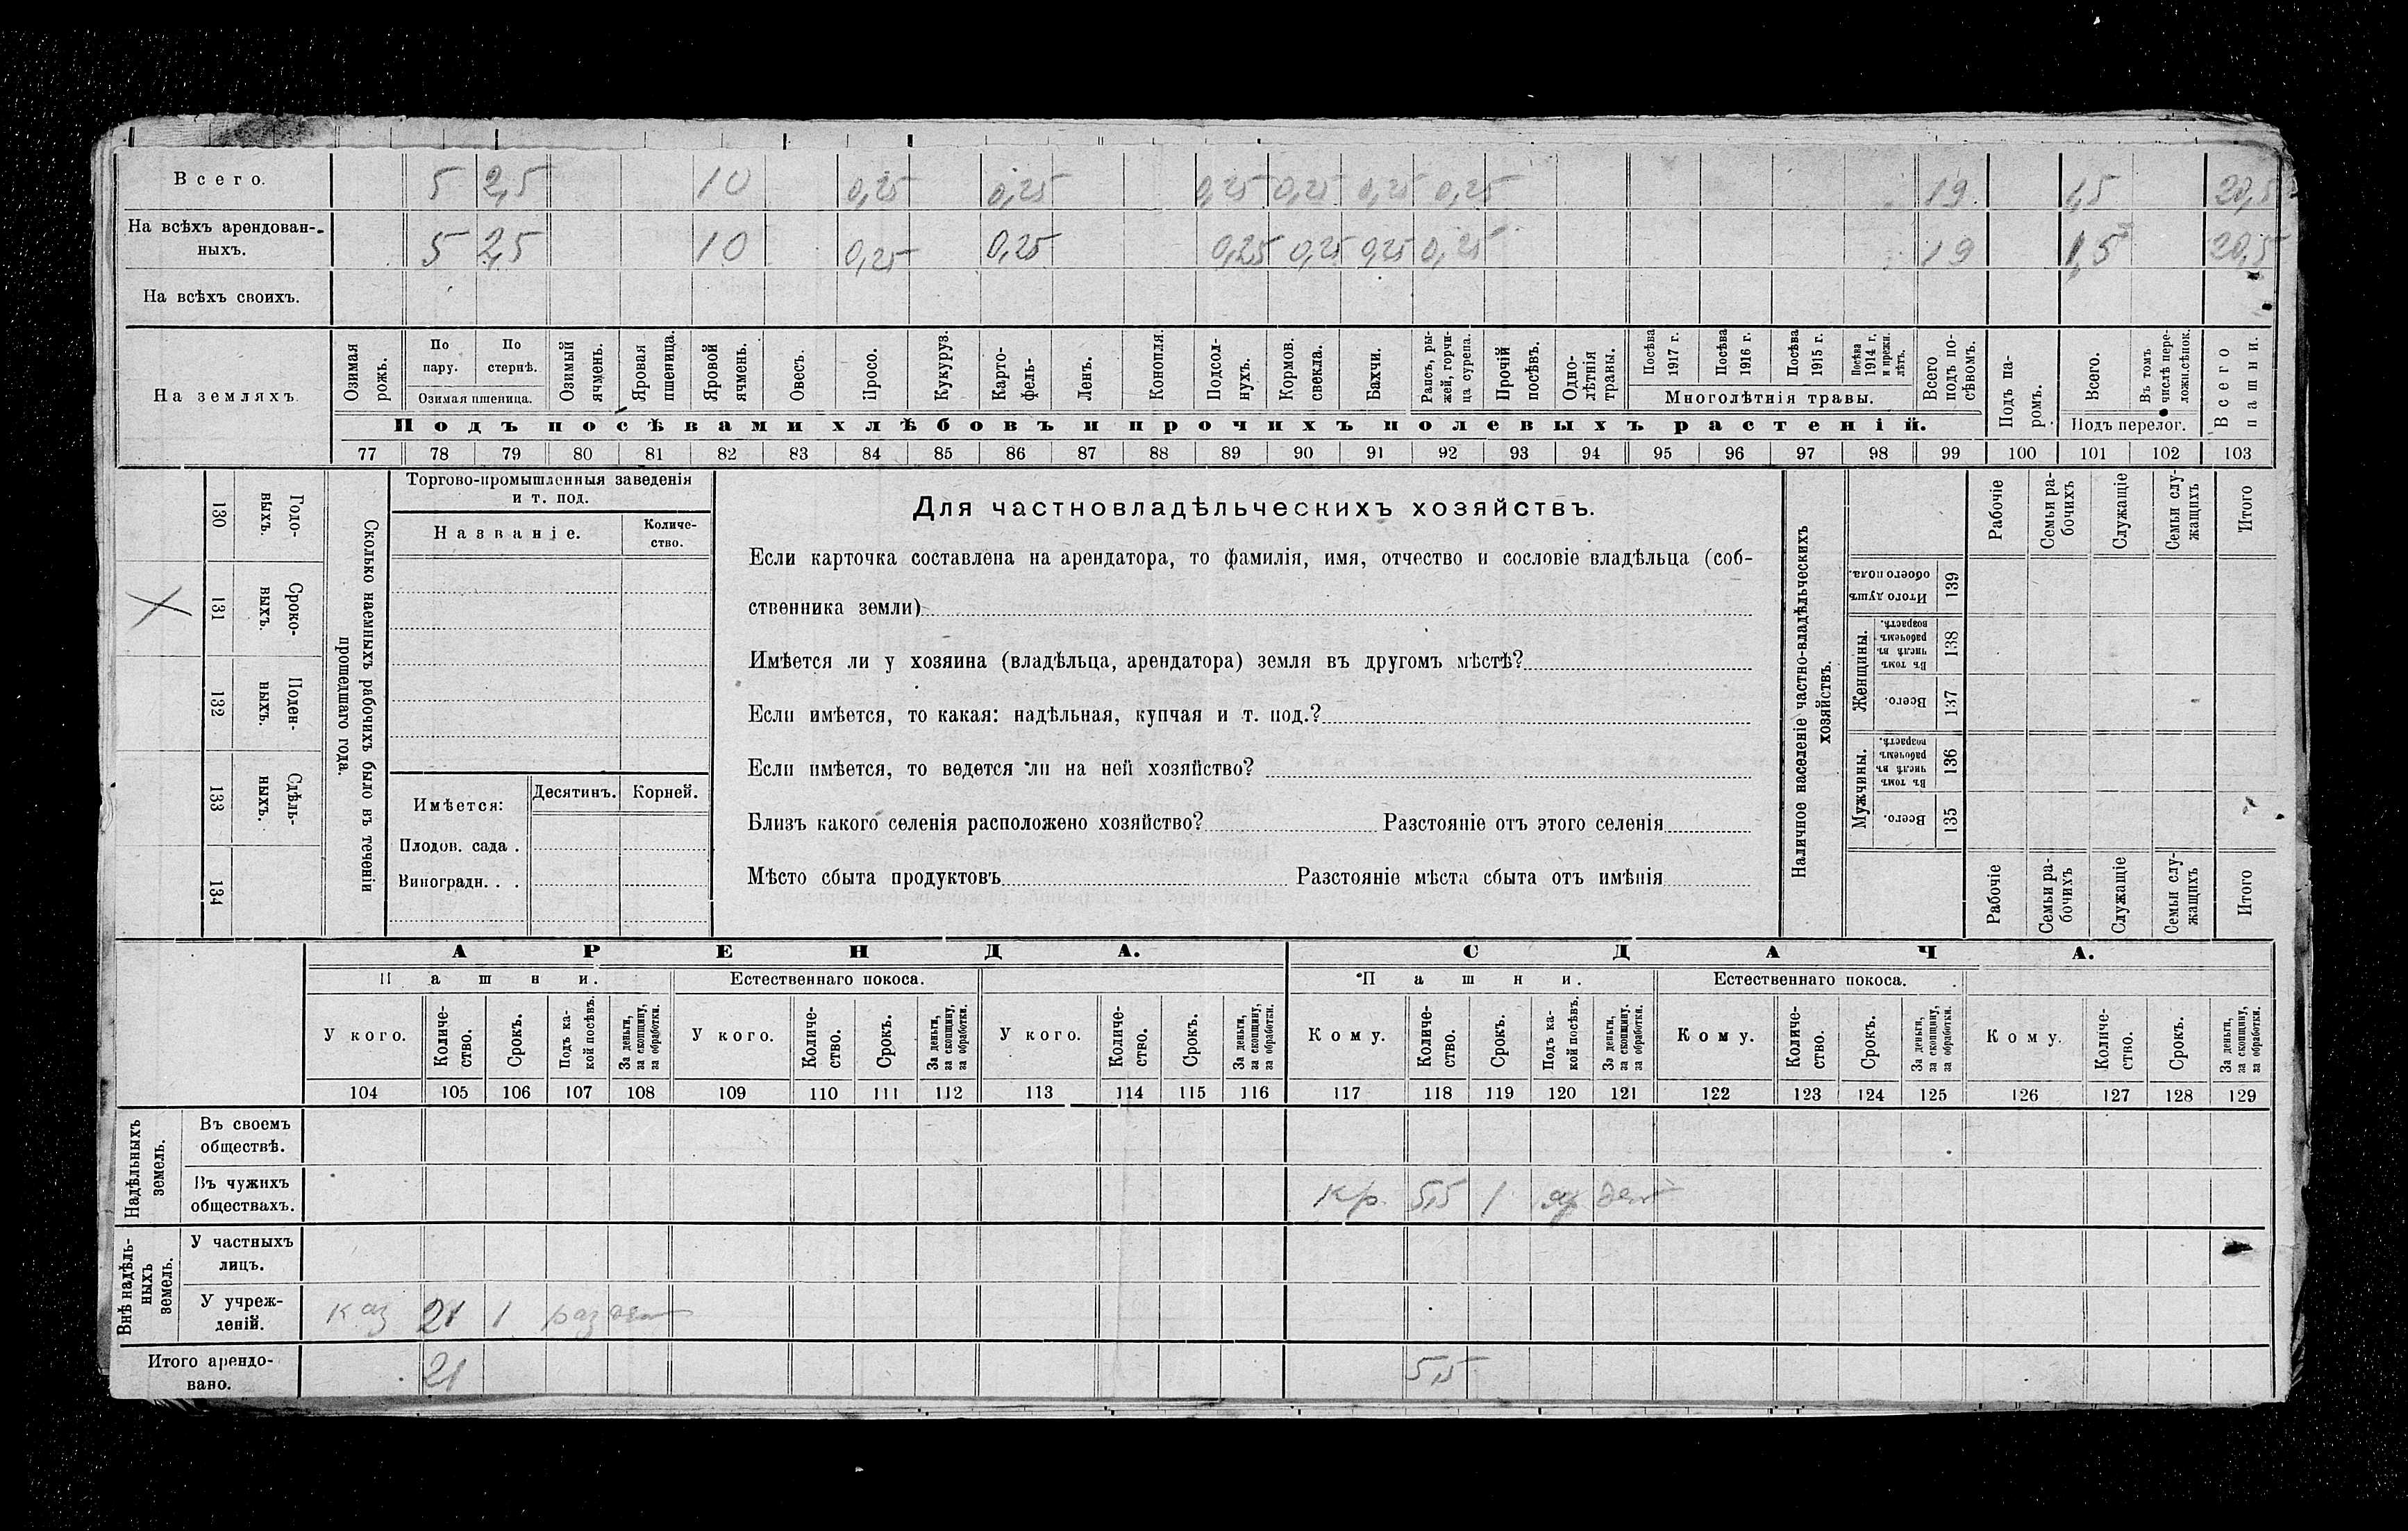 Всего. 5 2,5 10 0,25 0,25 0,25 0,25 0,25 0,25 19 1,5 20,5
На всѣхъ арендован-
ныхъ. 5 2,5 10 0,25 0,25 0,25 0,25 0,25 0,25 19 1,5 20,5
На всѣхъ своихъ.
На земляхъ
Озимая рожь.
По пару.
По стернѣ.
Озимая пшеница.
Озимый ячмень.
Яровая пшеница.
Яровой ячмень.
Овесъ.
Просо.
Кукуруз.
Карто-
фель-
Ленъ.
Конопля.
Подсол-
нухъ.
Кормов.
свекла.
Бахчи.
Рапсъ, ры-
жей, горчи-
ца сурепа.
Прочій
посѣвъ.
Одно-
лѣтнія
травы.
Посѣва
1917 г.
Посѣва
1916 г.
Посѣва
1915 г.
Посѣва
1914 г.
и прежн.
лѣтъ.
Многолѣтнія травы.
Всего
подъ по-
сѣвомъ.
Подъ па-
ромъ.
Всего.
Въ томъ
числѣ пере-
ложн.сѣнок.
Подъ перелог.
Всего
пашни.
Подъ посѣвами хлѣбовъ и прочихъ полевыхъ растеній.
77 78 79 80 81 82 83 84 85 86 87 88 89 90 91 92 93 94 95 96 97 98 99 100 101 102 103
Сколько наемныхъ рабочихъ было въ теченіи
прошедшаго года.
Годо-
выхъ.
130
Сроко-
выхъ.
131
Поден-
ныхъ.
132
Сдѣль-
ныхъ.
133
134
Торгово-промышленныя заведенія
и т. под.
Названіе.
Количе-
ство.
Имѣется:
Десятинъ. Корней.
Плодов. сада .
Виноградн. . .
Для частновладѣльческихъ хозяйствъ.
Если карточка составлена на арендатора, то фамилія, имя, отчество и сословіе владѣльца (соб-
ственника земли)
Имѣется ли у хозяина (владѣльца, арендатора) земля въ другомъ мѣстѣ?
Если имѣется, то какая: надѣльная, купчая и т. под.?
Если имѣется, то ведется ли на ней хозяйство?
Близъ какого селенія расположено хозяйство? Разстояніе отъ этого селенія
Мѣсто сбыта продуктовъ Разстояніе мѣста сбыта отъ имѣнія
Наличное населеніе частно-владѣльческихъ
хозяйствъ.
Рабочіе
Семьи ра-
бочихъ
Служащіе
Семьи слу-
жащихъ
Итого
Итого душъ
обоего пола.
139
Женщины.
Въ томъ
числѣ въ
рабочемъ
возрастѣ.
138
Всего.
137
Мужчины.
Въ томъ
числѣ въ
рабочемъ
возрастѣ.
136
Всего.
135
Рабочіе
Семьи ра-
бочихъ
Служащіе
Семьи слу-
жащихъ
Итого
АРЕНДА. СДАЧА.
Пашни. Естественнаго покоса. Пашни. Естественнаго покоса.
У кого.
Количе-
ство.
Срокъ.
Подъ ка-
кой посѣвъ.
За деньги,
за скопщину,
за обработки.
У кого.
Количе-
ство.
Срокъ.
За деньги,
за скопщину,
за обработки.
У кого.
Количе-
ство.
Срокъ.
За деньги,
за скопщину,
за обработки.
Кому.
Количе-
ство.
Срокъ.
Подъ ка-
кой посѣвъ.
За деньги,
за скопщину,
за обработки.
Кому.
Количе-
ство.
Срокъ.
За деньги,
за скопщину,
за обработки.
Кому.
Количе-
ство.
Срокъ.
За деньги,
за скопщину,
за обработки.
104 105 106 107 108 109 110 111 112 113 114 115 116 117 118 119 120 121 122 123 124 125 126 127 128 129
Надѣльныхъ
земель.
Въ своемъ
обществѣ.
Въ чужихъ
обществахъ. Кр. 5,5 1 ден
Внѣ надѣль-
ныхъ
земель.
У частныхъ
лицъ.
У учреж-
деній. каз 21 1 раз ден
Итого арендо-
вано. 21 5,5